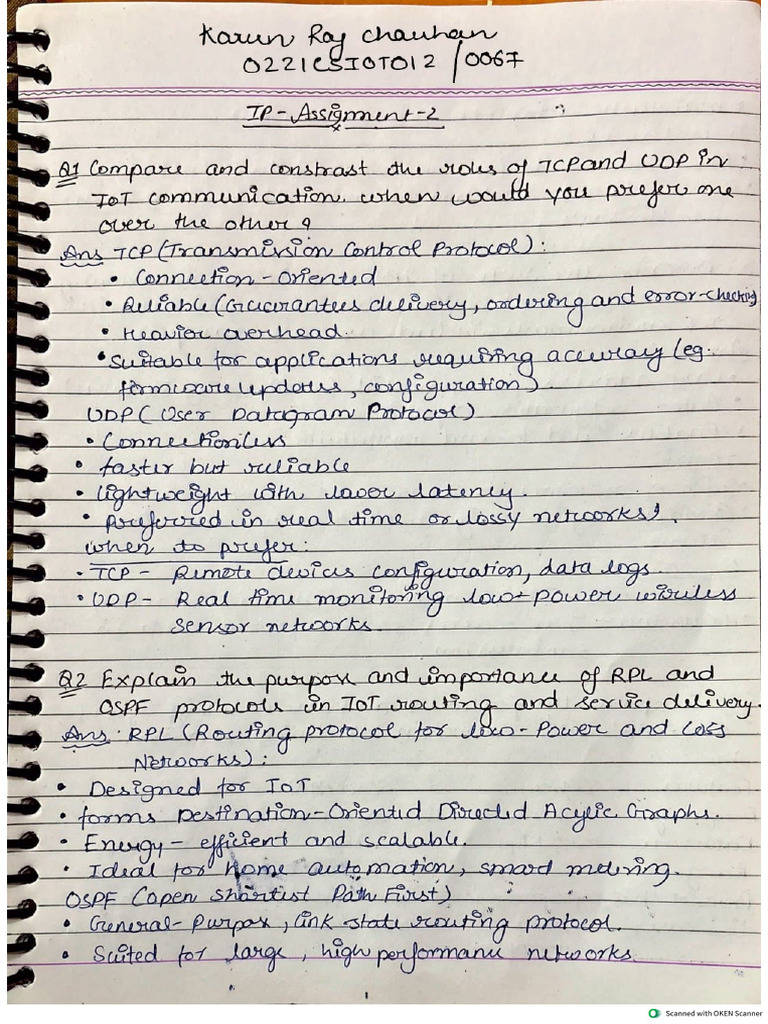 Karun Raj Chauhan
0221CSIOT012 /0067
IP-Assignment-2
Q1 Compare and constrast the roles of TCP and UDP in
IoT communication. when would you prefer one
over the other?
Ans TCP (Transmission Control Protocol):
• Connection-Oriented
• Reliable (Guarantees delivery, ordering and error-checking)
• Heavier overhead.
• Suitable for applications requiring accuracy (eg.
firmware updates, configuration)
UDP (User Datagram Protocol)
• Connectionless
• faster but reliable
• lightweight with lower latency.
• preferred in real time or lossy networks.
when to prefer:
• TCP - Remote devices configuration, data logs.
• UDP - Real time monitoring low-power wireless
sensor networks.
Q2 Explain the purpose and importance of RPL and
OSPF protocols in IOT routing and service delivery.
Ans: RPL (Routing protocol for low-Power and Loss
Networks):
• Designed for IoT
• forms Destination-Oriented Directed Acylic Graphs.
• Energy-efficient and scalable.
• Ideal for home automation, smard metring.
OSPF (open shortest Path First)
• General-Purpose, link state routing protocol.
• Suited for large, high performance networks.
1
Scanned with OKEN Scanner